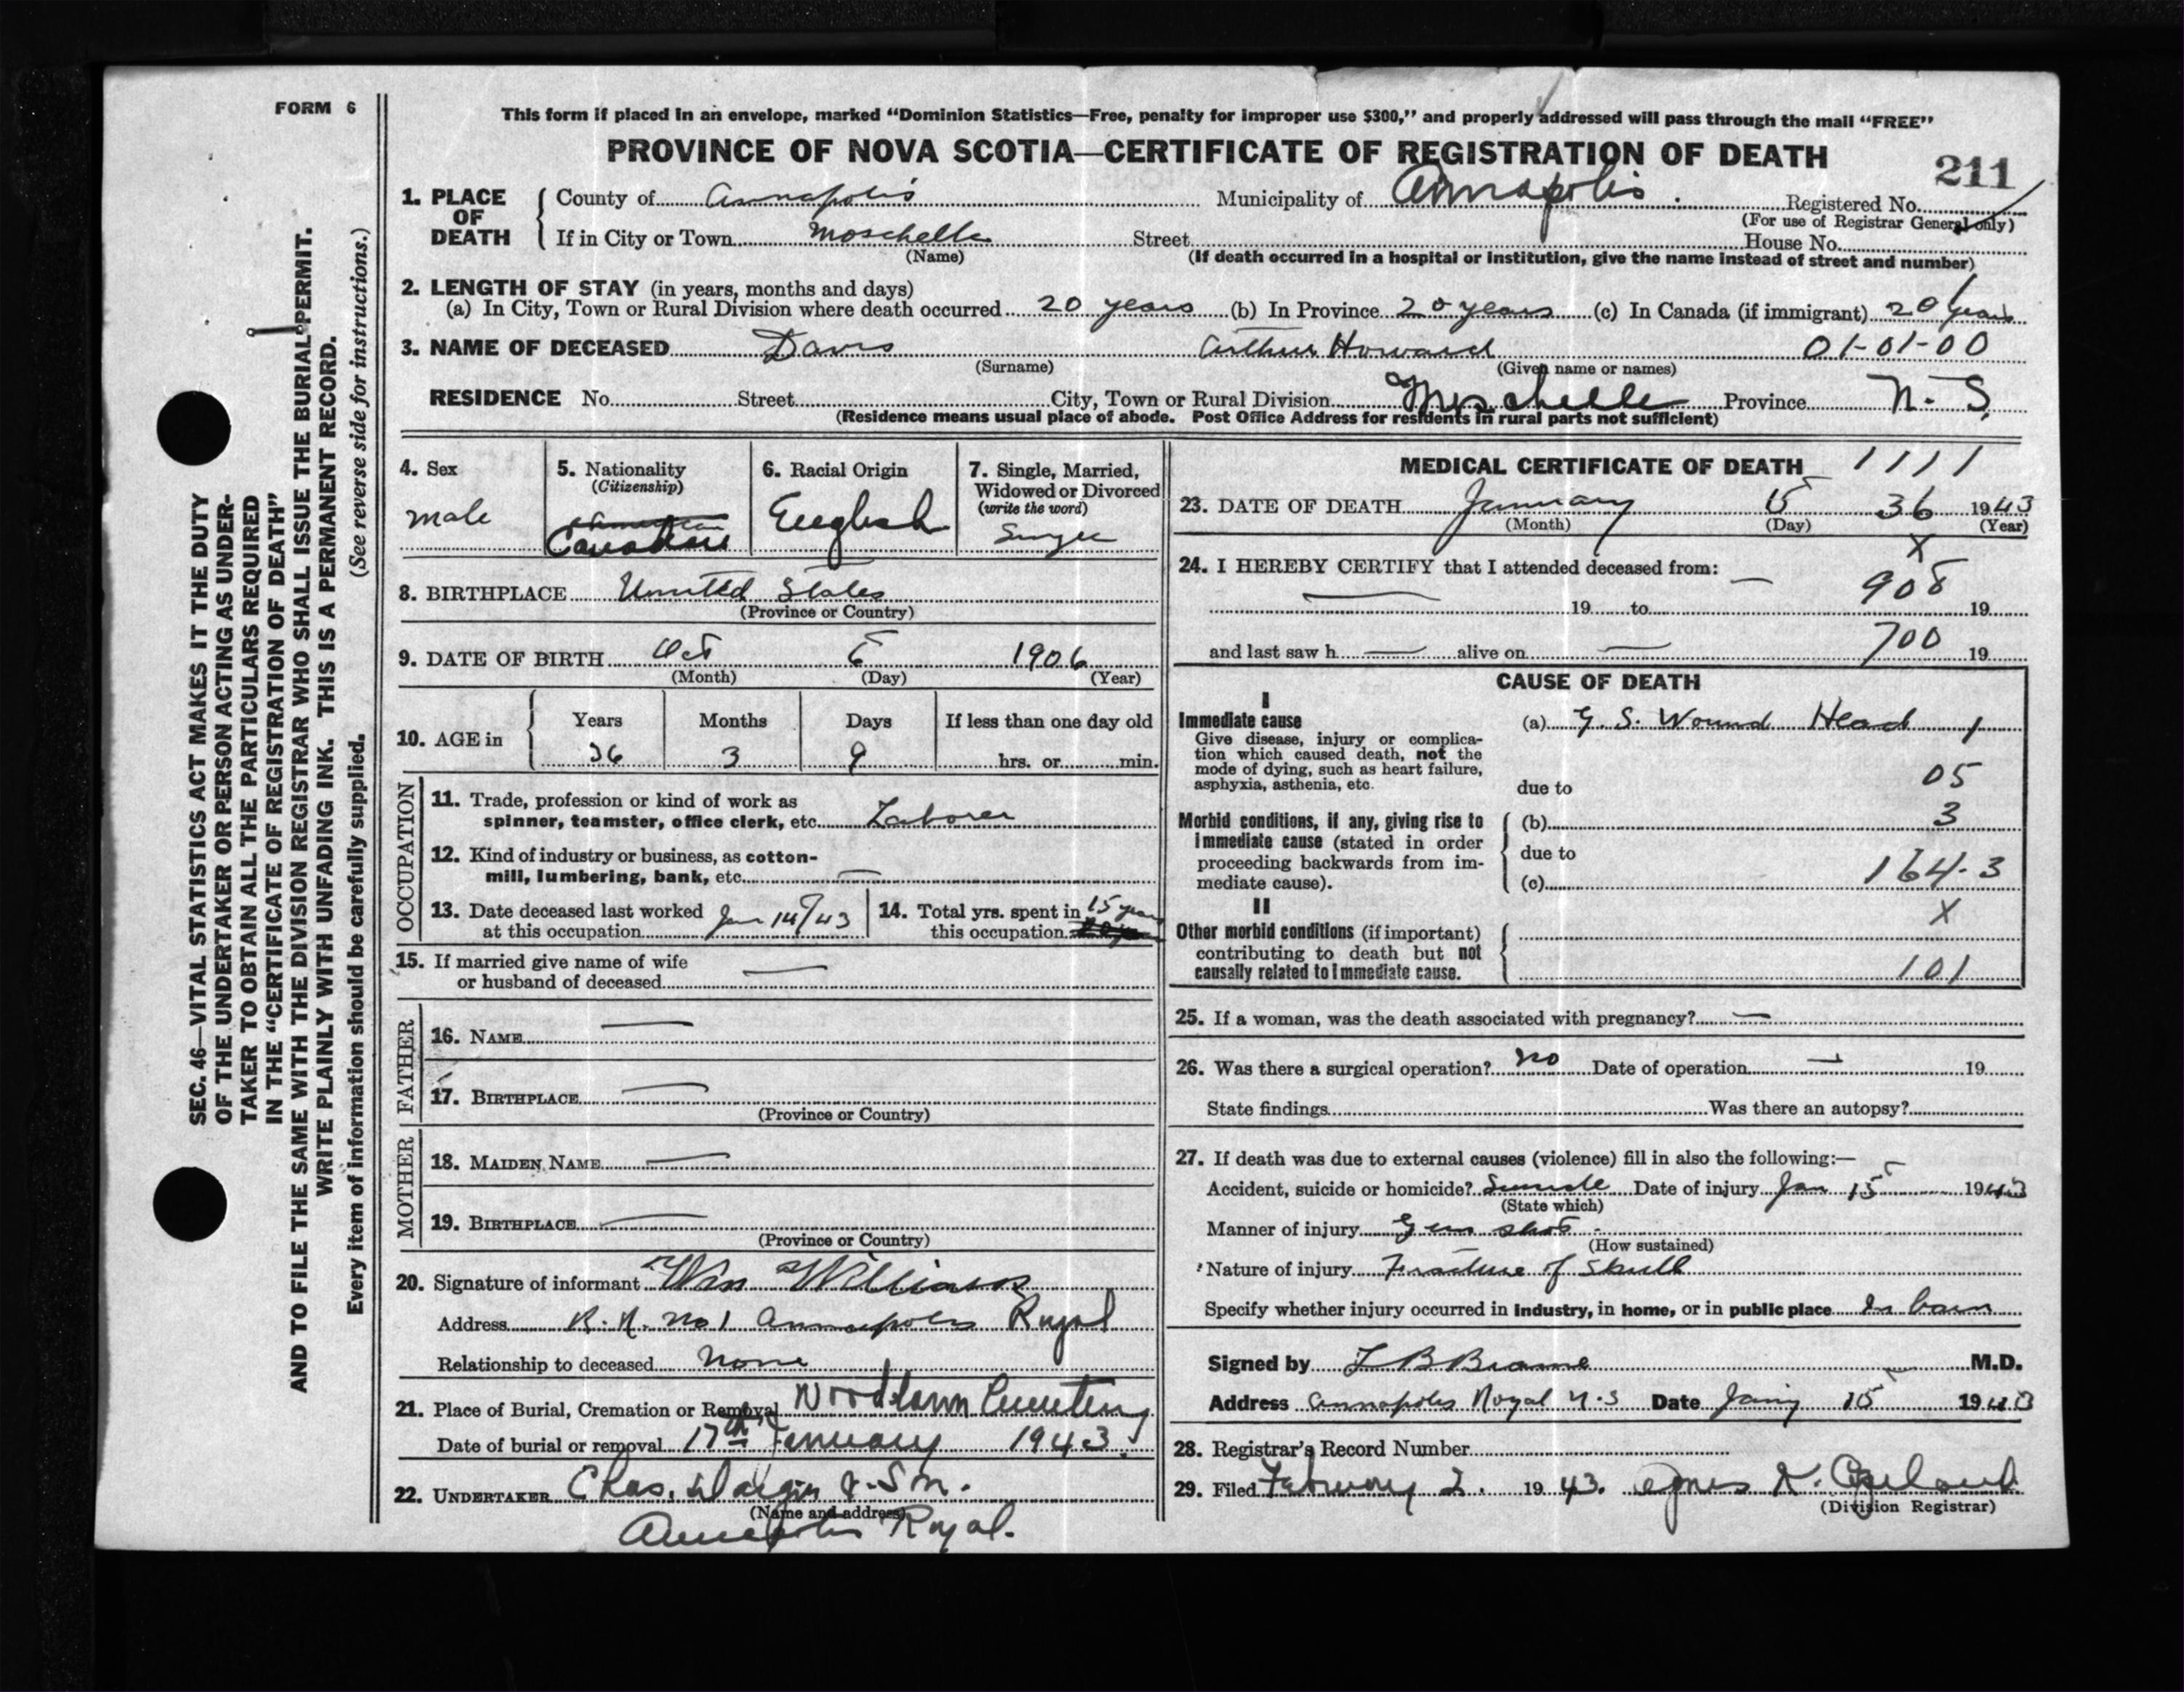 FORM 6
SEC. 46—VITAL STATISTICS ACT MAKES IT THE DUTY
OF THE UNDERTAKER OR PERSON ACTING AS UNDER-
TAKER TO OBTAIN ALL THE PARTICULARS REQUIRED
IN THE "CERTIFICATE OF REGISTRATION OF DEATH"
AND TO FILE THE SAME WITH THE DIVISION REGISTRAR WHO SHALL ISSUE THE BURIAL PERMIT.
WRITE PLAINLY WITH UNFADING INK. THIS IS A PERMANENT RECORD.
Every item of information should be carefully supplied. (See reverse side for instructions.)
This form if placed in an envelope, marked "Dominion Statistics—Free, penalty for improper use $300," and properly addressed will pass through the mail "FREE"
PROVINCE OF NOVA SCOTIA—CERTIFICATE OF REGISTRATION OF DEATH
211
1. PLACE OF DEATH
County of Annapolis Municipality of Annapolis Registered No.
(For use of Registrar General only)
If in City or Town Moschelle Street House No.
(Name) (If death occurred in a hospital or institution, give the name instead of street and number)
2. LENGTH OF STAY (in years, months and days)
(a) In City, Town or Rural Division where death occurred 20 years (b) In Province 20 years (c) In Canada (if immigrant) 20 years
3. NAME OF DECEASED Davis Arthur Howard 01-01-00
(Surname) (Given name or names)
RESIDENCE No. Street City, Town or Rural Division Moschelle Province N. S.
(Residence means usual place of abode. Post Office Address for residents in rural parts not sufficient)
4. Sex
male
5. Nationality
(Citizenship)
American
Canadian
6. Racial Origin
English
7. Single, Married,
Widowed or Divorced
(write the word)
Single
8. BIRTHPLACE United States
(Province or Country)
9. DATE OF BIRTH Oct 6 1906
(Month) (Day) (Year)
10. AGE in
Years Months Days If less than one day old
36 3 9 hrs. or min.
OCCUPATION
11. Trade, profession or kind of work as
spinner, teamster, office clerk, etc. Laborer
12. Kind of industry or business, as cotton-
mill, lumbering, bank, etc. —
13. Date deceased last worked
at this occupation Jan 14/43
14. Total yrs. spent in 15 years
this occupation
15. If married give name of wife
or husband of deceased —
FATHER
16. NAME —
17. BIRTHPLACE —
(Province or Country)
MOTHER
18. MAIDEN NAME —
19. BIRTHPLACE —
(Province or Country)
20. Signature of informant Wm Williams
Address R. R. No 1 Annapolis Royal
Relationship to deceased None
21. Place of Burial, Cremation or Removal Woodlawn Cemetery
Date of burial or removal 17th January 1943.
22. UNDERTAKER Chas. & Son.
(Name and address)
Annapolis Royal.
MEDICAL CERTIFICATE OF DEATH 1111
23. DATE OF DEATH January 15 36 1943
(Month) (Day) (Year)
X
24. I HEREBY CERTIFY that I attended deceased from: —
— 19 to 908 19
and last saw h — alive on — 700 19
CAUSE OF DEATH
I
Immediate cause
Give disease, injury or complica-
tion which caused death, not the
mode of dying, such as heart failure,
asphyxia, asthenia, etc.
(a) G. S. Wound Head 1
05
due to
Morbid conditions, if any, giving rise to
immediate cause (stated in order
proceeding backwards from im-
mediate cause).
(b) 3
due to
(c) 164-3
II
X
Other morbid conditions (if important)
contributing to death but not
causally related to immediate cause.
101
25. If a woman, was the death associated with pregnancy? —
26. Was there a surgical operation? No Date of operation — 19
State findings Was there an autopsy?
27. If death was due to external causes (violence) fill in also the following:—
Accident, suicide or homicide? Suicide Date of injury Jan 15 1943
(State which)
Manner of injury Gun shot -
(How sustained)
Nature of injury Fracture of Skull
Specify whether injury occurred in industry, in home, or in public place In barn
Signed by L B Braine M.D.
Address Annapolis Royal N.S Date Jany 15 1943
28. Registrar's Record Number
29. Filed February 2. 1943. Agnes K.
(Division Registrar)